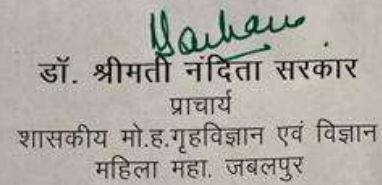 डॉ. श्रीमती नंदिता सरकार
प्राचार्य
शासकीय मो.ह.गृहविज्ञान एवं विज्ञान
महिला महा. जबलपुर